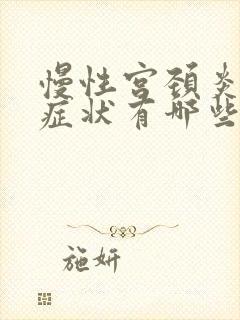 慢性宫颈炎
症状有哪些
施妍